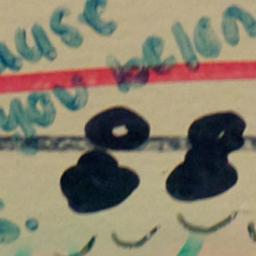 ause
you belon